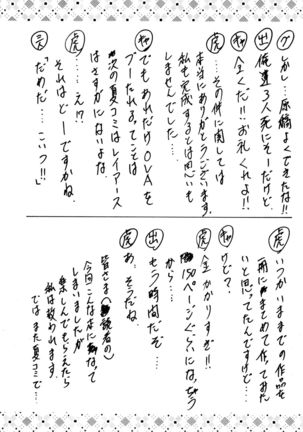 ク
しかし…原稿よくできたよな…
出
俺達3人死にそーだけど…
サ
全くだ!!お礼くれよ!!
虎
……その件に関しては
本当にありがとうございます
私も完成するとは思いも
しませんでした…。
サ
でもあれだけOVAを
ブーたれてたってことは
次の夏コミはレイアース
はさすがにないよな。
虎
……え!?
それはどーですかね。
三人
「だめだ……こいつ!!」
虎
いつかいままでの作品を
一冊にまとめて作ってみた
いと思ってたんですけど…
サ
けど?
虎
金かかりすぎ!!
150ページぐらいになっちゃう
から…
出
もう時間だぞ…
虎
あ、そうだね
皆さま(読者の)
今回こんな本になって
しまいましたが
楽しんでもらえたら
私は救われます
ではまた夏コミで…